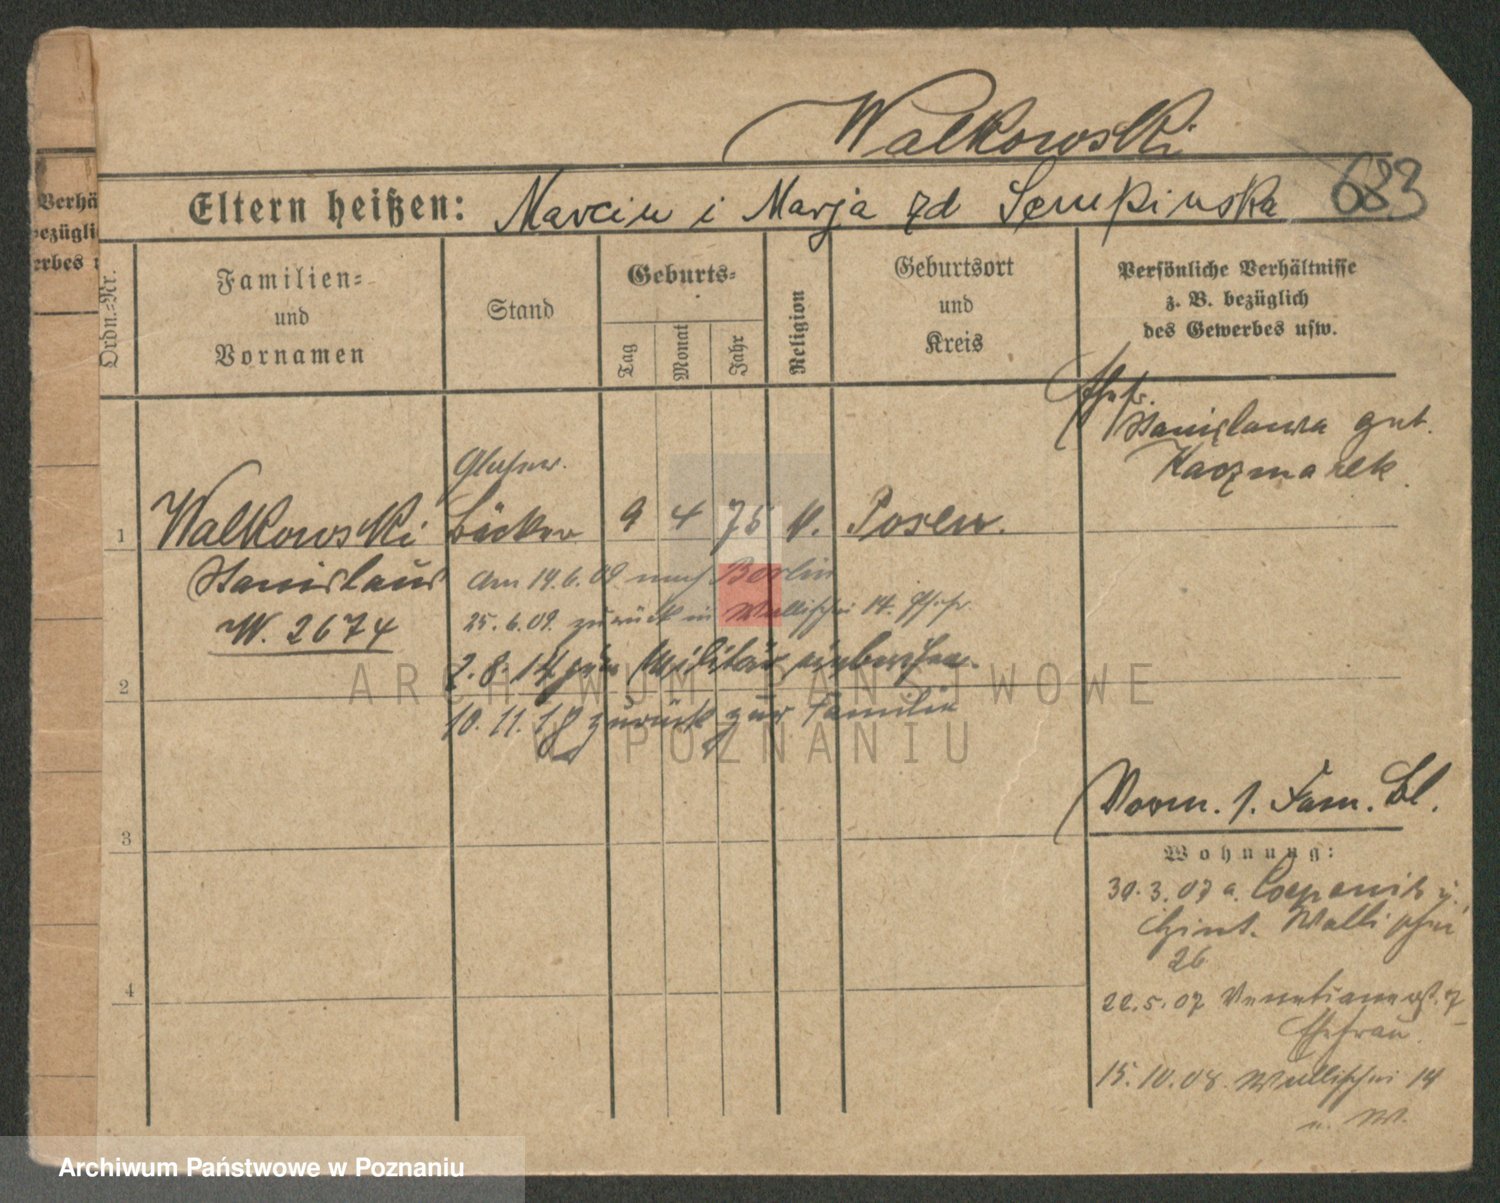 Walkowski
683
Eltern heißen: Marcin i Marja zd Sempinska
Verhä
bezügli
erbes u
Ordn.-Nr.
Familien-
und
Vornamen
Stand
Geburts-
Tag
Monat
Jahr
Religion
Geburtsort
und
Kreis
Persönliche Verhältnisse
z. B. bezüglich
des Gewerbes usw.
Ehefr.
Stanislawa geb.
Kaczmarek.
1 Walkowski Bäcker 9 4 75 k. Posen.
Stanislaus
W. 2674
am 19.6.09 nach Berlin
25.6.09. zurück in Wallischei 14. Ehefr.
2.8.14 zum Militär einberufen.
2
10.11.18 zurück zur Familie
3
4
Vorm. 1. Fam. Bl.
Wohnung:
30.3.07 a.
Wallischei
26
22.5.07 Venetianerst. 7
Ehefrau.
15.10.08. Wallischei 14
u. W.
ARCHIWUM PAŃSTWOWE
W POZNANIU
Archiwum Państwowe w Poznaniu